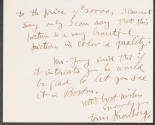 to the price $5000, I cannot
say only I can say that this
picture is a very beautiful
picture in color & quality.
Mr. Young said that if
it interests you he would
be glad to let you see
it in Boston.
With best wishes
Sincerely yours
Louis Kronberg